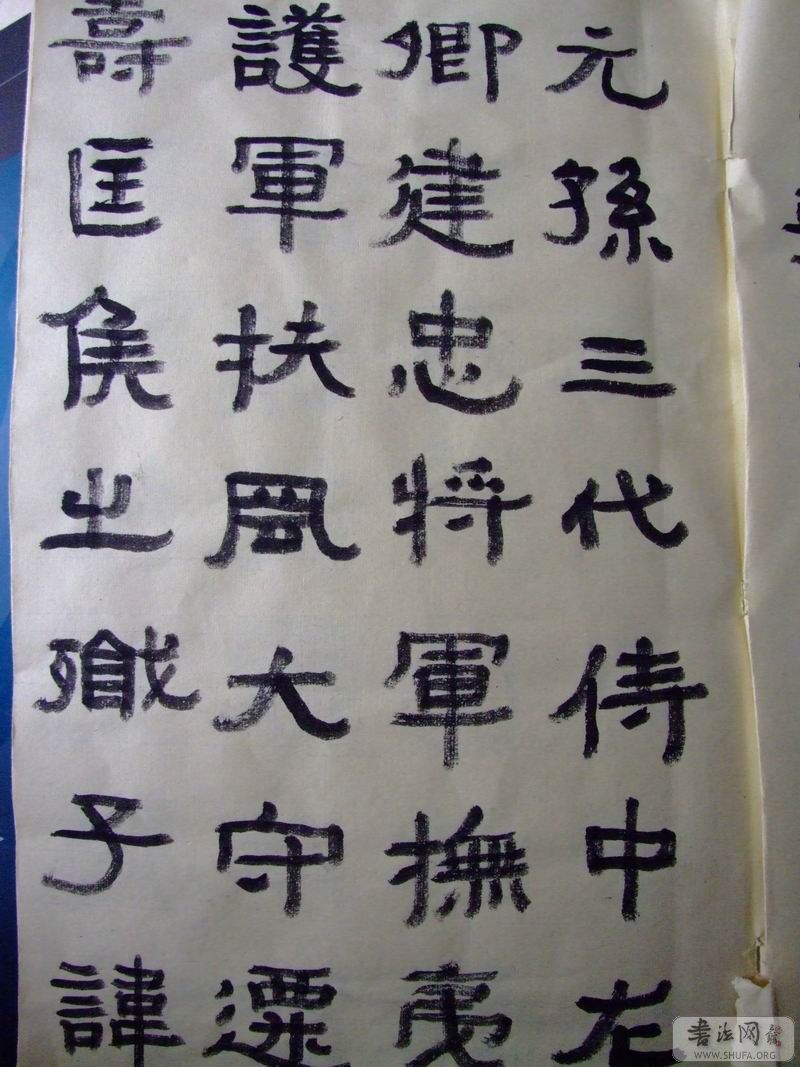 元孫三代侍中
卿建忠將軍撫夷
護軍扶風大守
壽匡侯之子諱
书法网
WWW.SHUFA.ORG